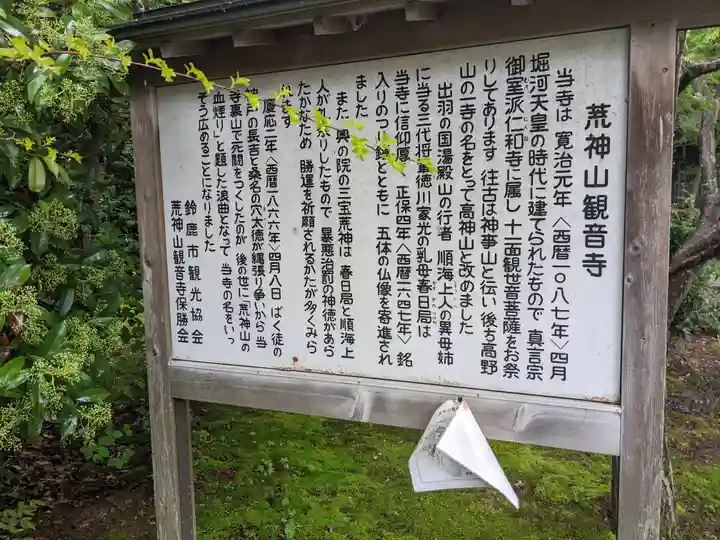 荒神山観音寺
当寺は 寛治元年〈西暦一〇八七年〉四月
堀河天皇の時代に建てられたもので 真言宗
御室派仁和寺に属し 十一面観世音菩薩をお祭
りしてあります 往古は神事山と伝い 後ち高野
山の一寺の名をとって高神山と改めました
出羽の国湯殿山の行者 順海上人の異母姉
に当る三代将軍徳川家光の乳母春日局は
当寺に信仰厚く 正保四年〈西暦一六四七年〉銘
入りのつり鐘とともに 五体の仏像を寄進され
ました
また 奥の院の三宝荒神は 春日局と順海上
人が
りしたもので 暴悪治罰の神徳があら
たかなため 勝運を祈願されるかたが多くみら
います
慶応二年〈西暦一八六六年〉四月八日 ばく徒の
神戸の長吉と桑名の穴太徳が縄張り争いから 当
寺裏山で死闘をつくしたのが 後の世に「荒神山の
血煙り」と題した浪曲となって 当寺の名をいっ
そう広めることになりました
鈴鹿市観光協会
荒神山観音寺保勝会